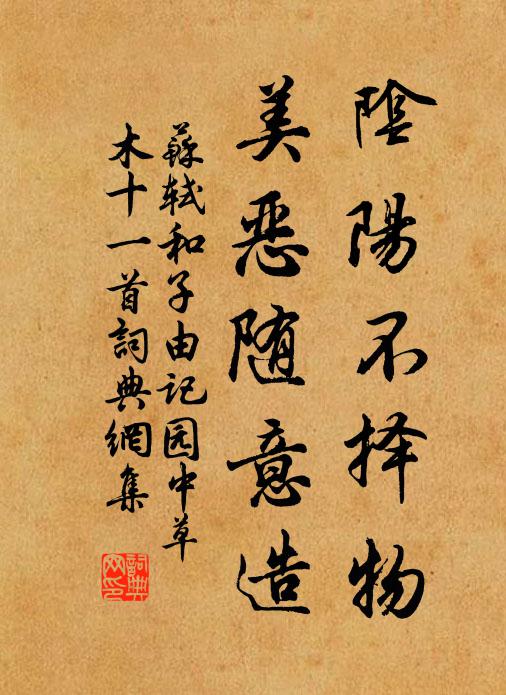 陰陽不择物
美恶随意造
蘇轼和子由记园中草
木十一首詞典網集
詞典
网印